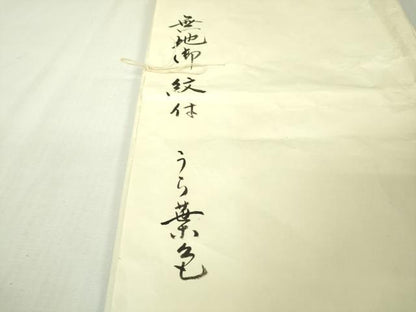 無地御紋付 うら葉色